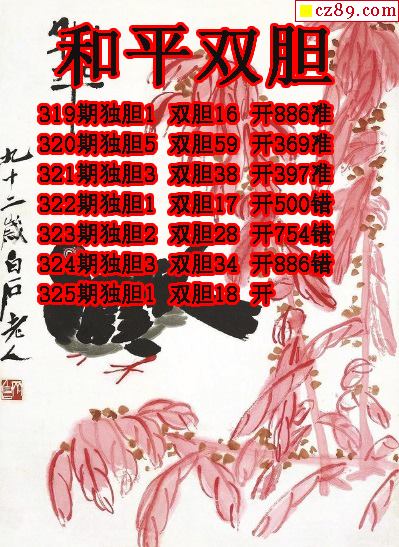 cz89.com
和平双胆
319期独胆1 双胆16 开886准
320期独胆5 双胆59 开369准
321期独胆3 双胆38 开397准
322期独胆1 双胆17 开500错
323期独胆2 双胆28 开754错
324期独胆3 双胆34 开886错
325期独胆1 双胆18 开
九十二歲白石老人